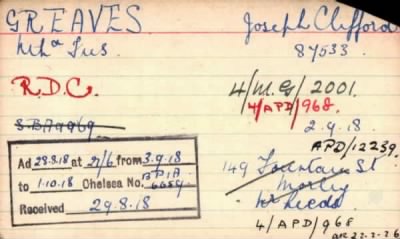 GREAVES Joseph Clifford
Nhd Fus. 87533.
R.D.C. 4/M.G/2001.
4/APD/968.
S.B.A 9969 2.9.18
APD/12239.
Ad 28.8.18 at 27/6 from 3.9.18
to 1.10.18 Chelsea No. 6659
Received 29.8.18
149 Fountain St
Morley
Nr Leeds
4/APD/968
22-2-26